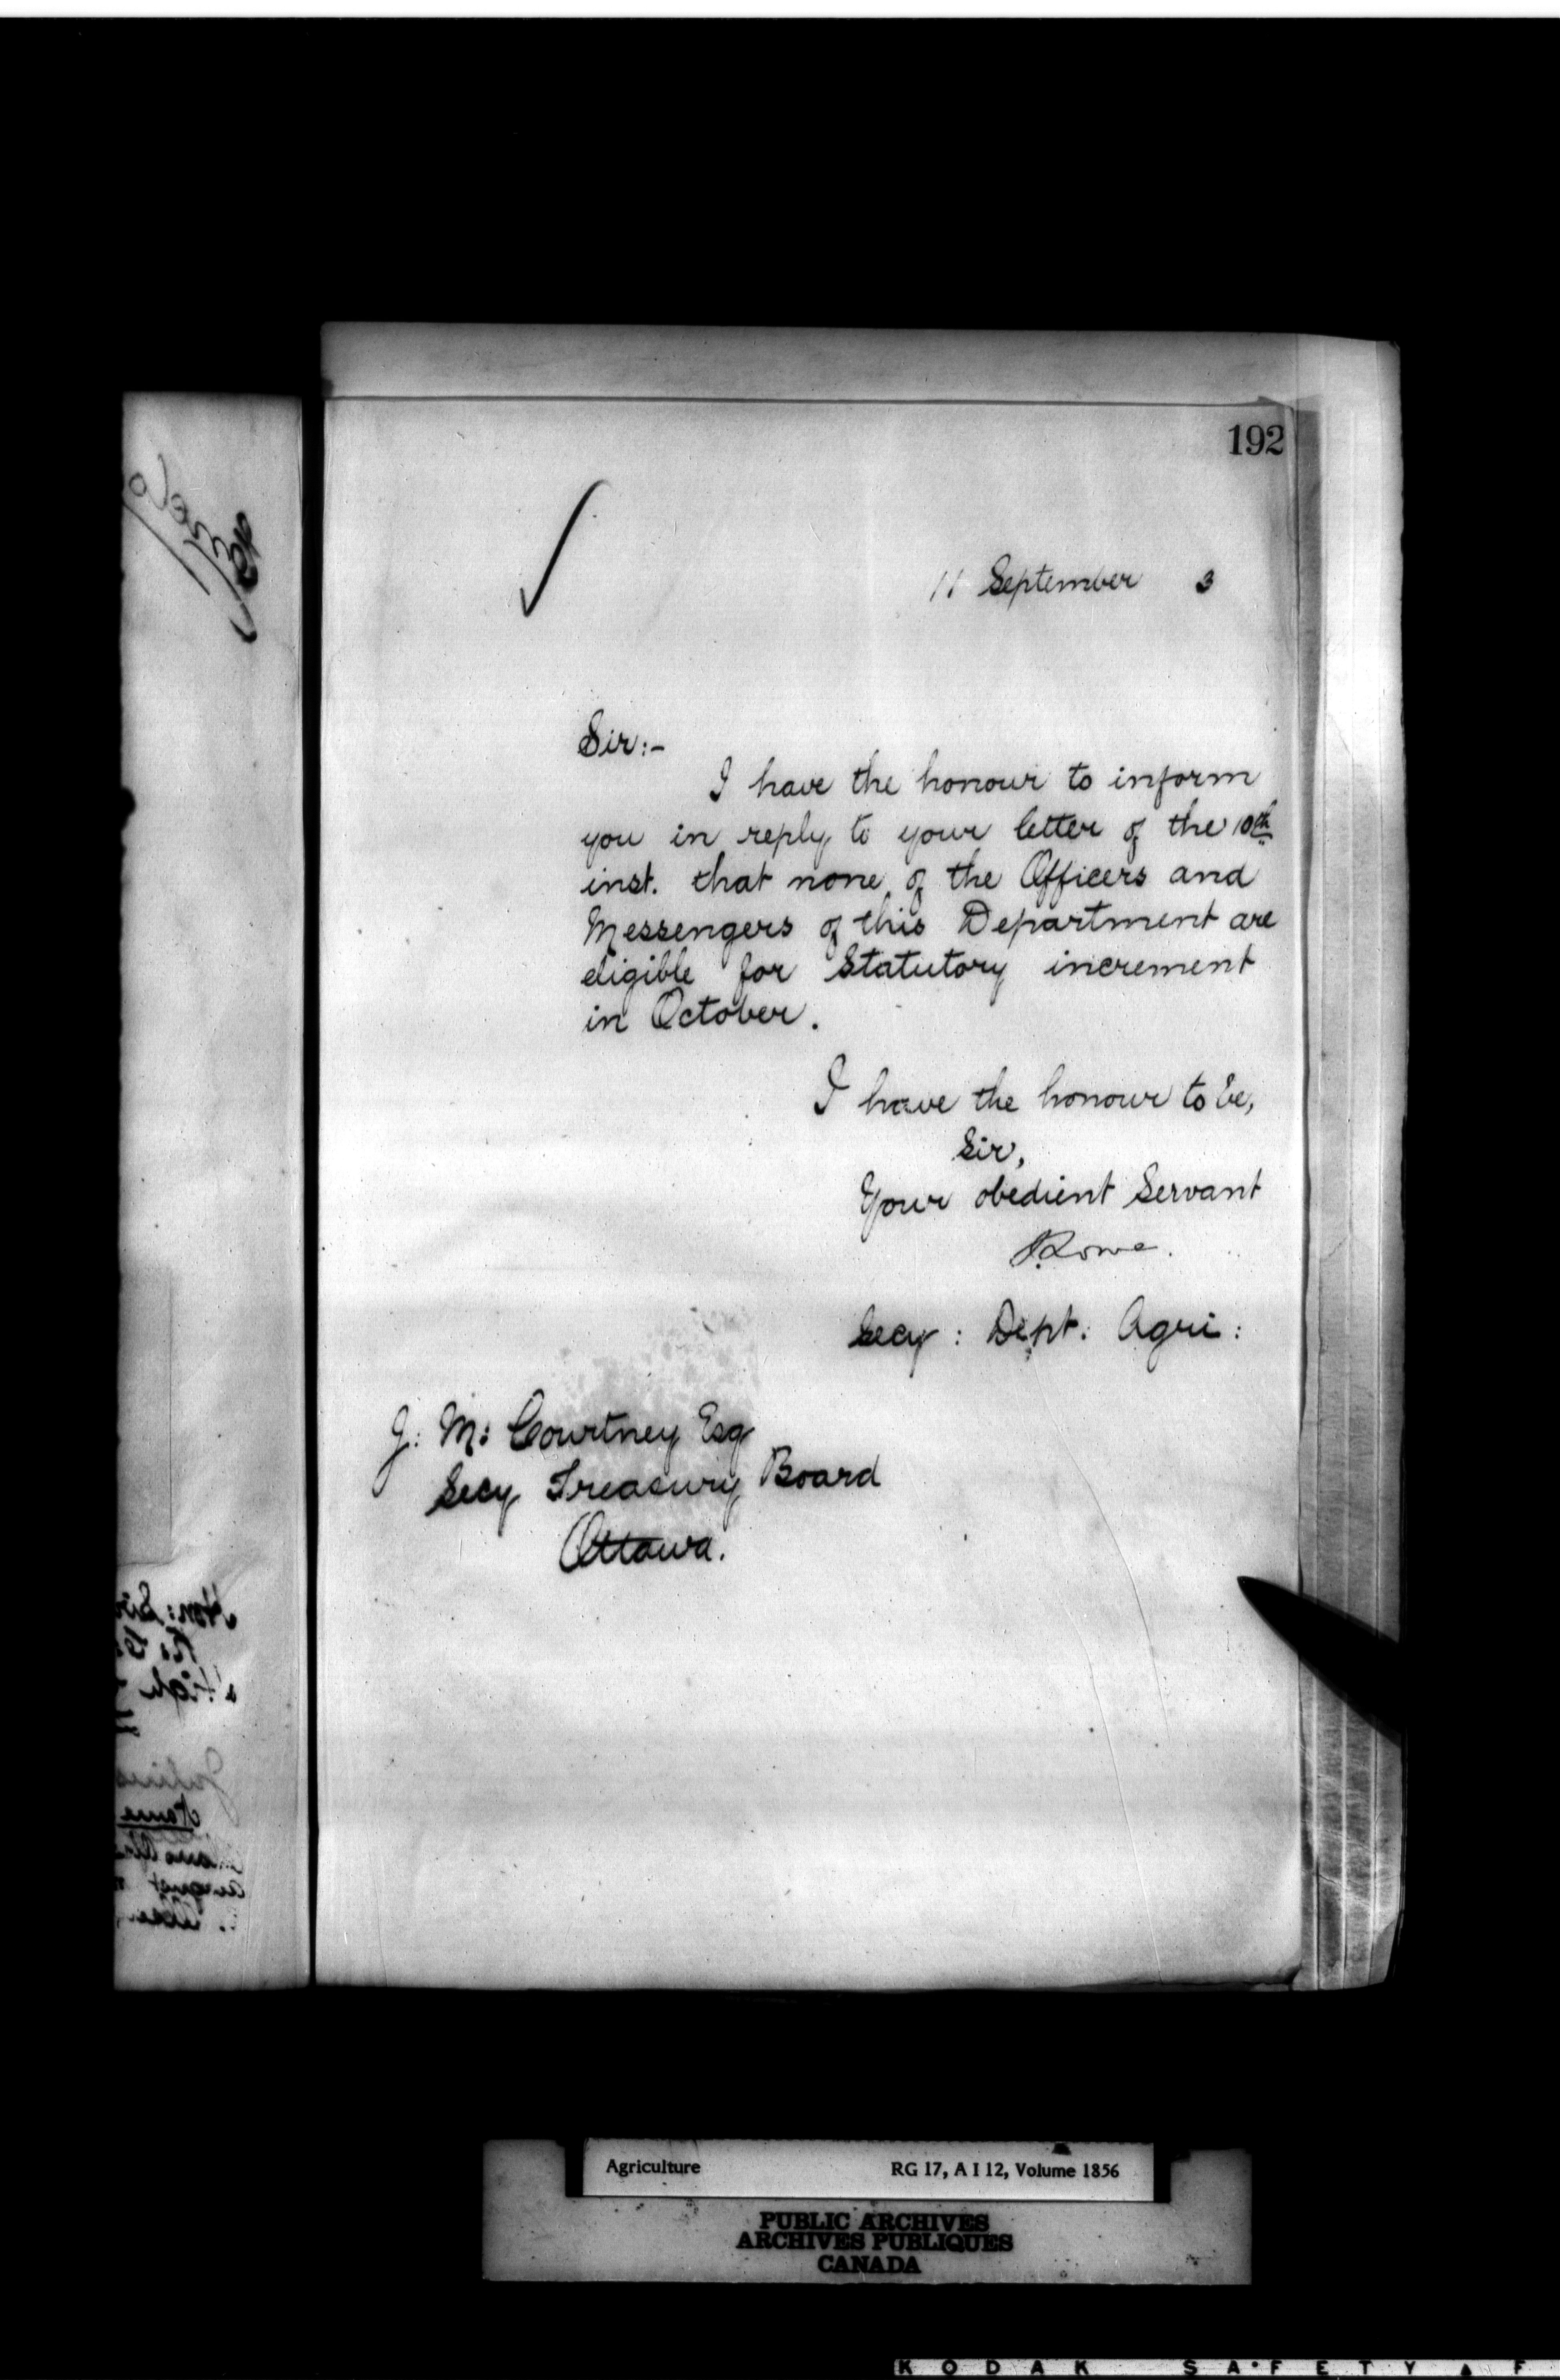 192
11 September 3
Sir:-
I have the honour to inform
you in reply to your letter of the 10th
inst. that none of the Officers and
Messengers of this Department are
eligible for Statutory increment
in October.
I have the honour to be,
Sir,
Your obedient Servant
Lowe.
Secy: Dept: Agri:
J: M: Courtney Esq
Secy Treasury Board
Ottawa.
Agriculture RG 17, A I 12, Volume 1856
PUBLIC ARCHIVES
ARCHIVES PUBLIQUES
CANADA
KODAK SAFETY F